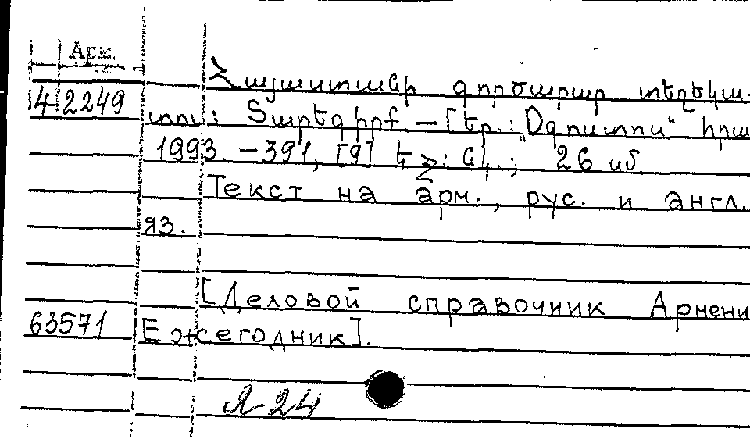 Арм.
Հայաստանի գործարար տեղեկա-
4 2249 տու: Տարեգիրք - [Եր.: "Օգոստոս" հրատ
1993 - 391, [9] էջ: գծ.; 26 սմ
Текст на арм., рус. и англ.
яз.
[Деловой справочник Армени
63571 Ежегодник].
Я-24